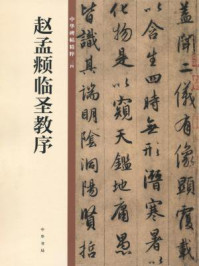 中华碑帖精粹
赵孟頫临圣教序
中华书局
蓋聞二儀有像顯覆載
以含生四時無形潛寒暑以
化物是以窺天鑑地庸愚
皆識其端明陰洞陽賢哲